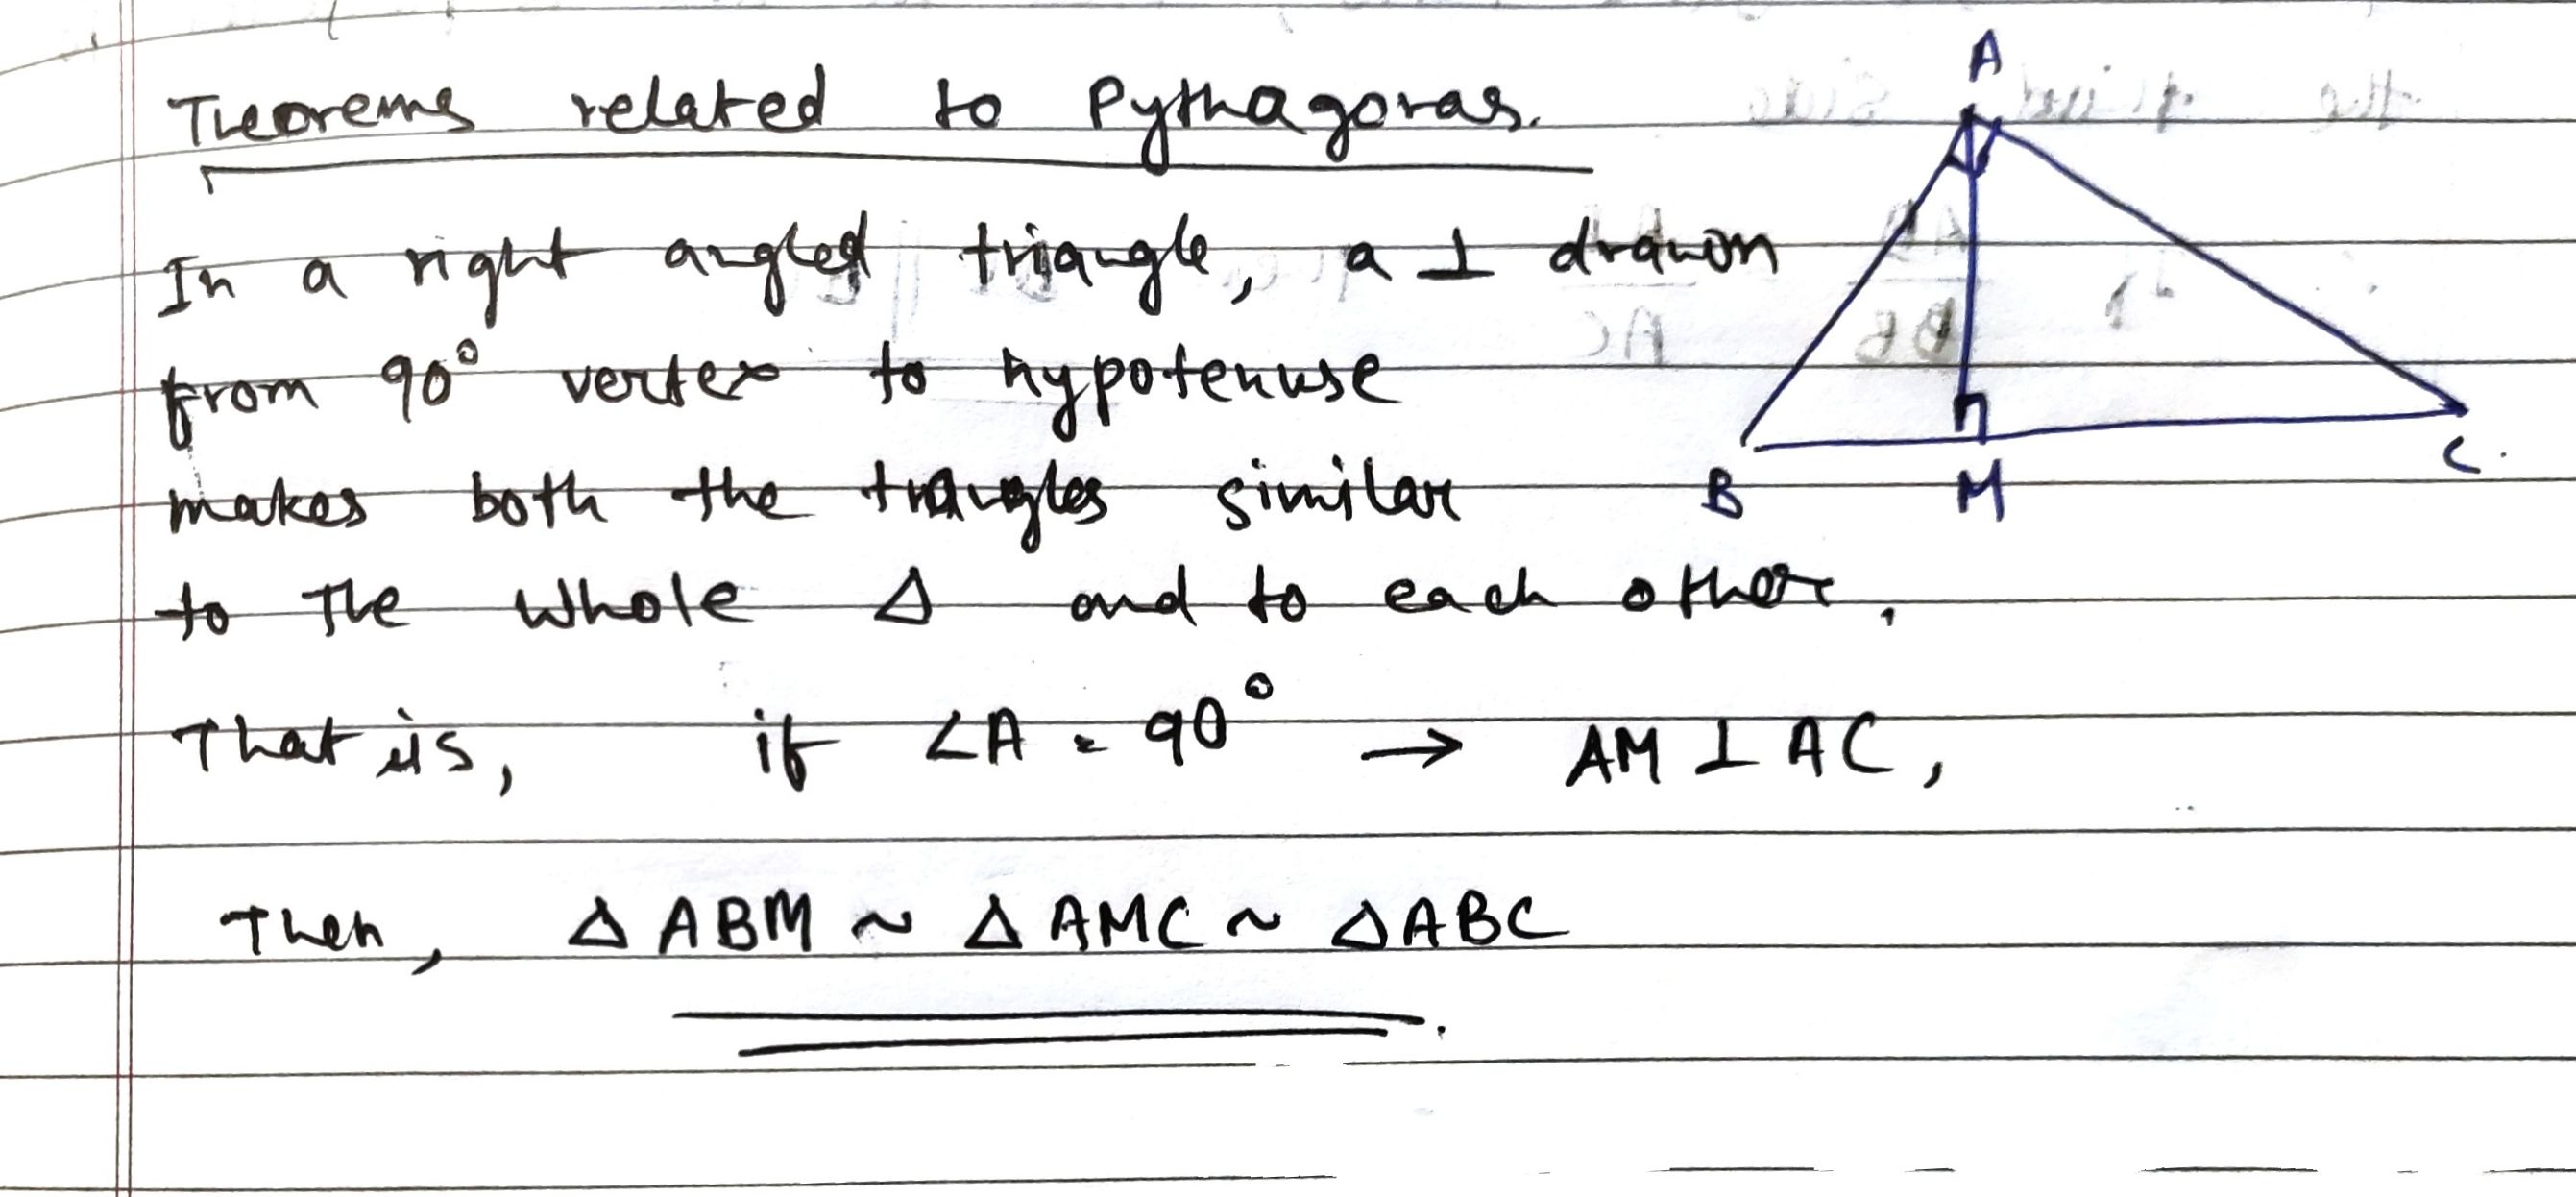 Theorems related to Pythagoras.
A
In a right angled triangle, a ⊥ drawn
from 90° vertex to hypotenuse
makes both the triangles similar
B M C.
to the whole Δ and to each other.
That is, if ∠A = 90° → AM ⊥ AC,
Then, Δ ABM ~ Δ AMC ~ Δ ABC